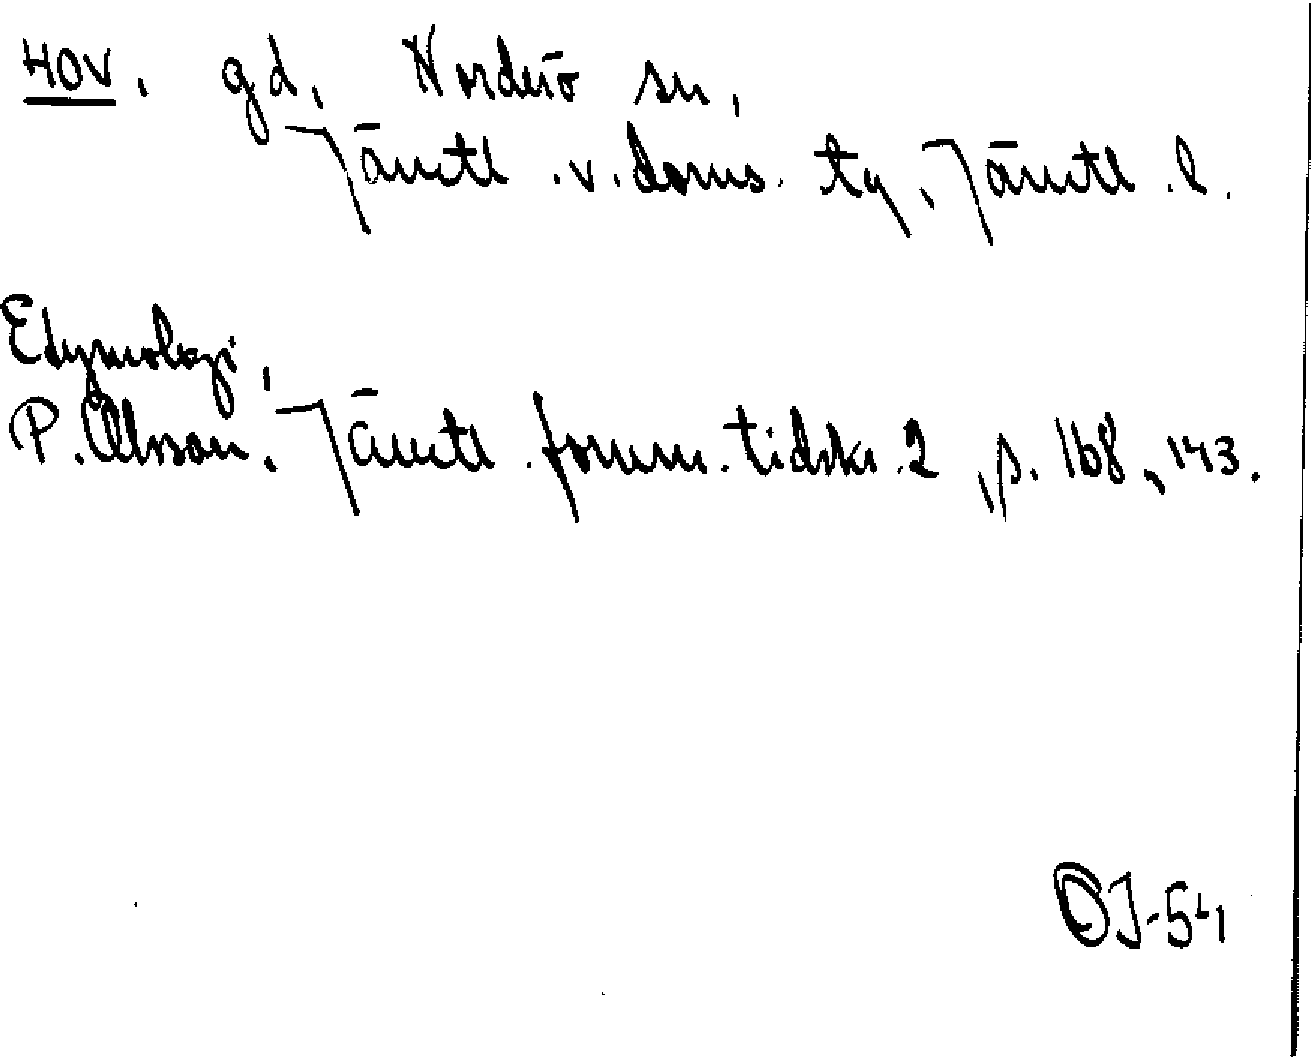 HOV. gd, Norderö sn,
Jämtl. v. doms. tg, Jämtl. l.
Etymologi,
P. Olsson. Jämtl. fornm. tidskr. 2, s. 168, 143.
OJ-54